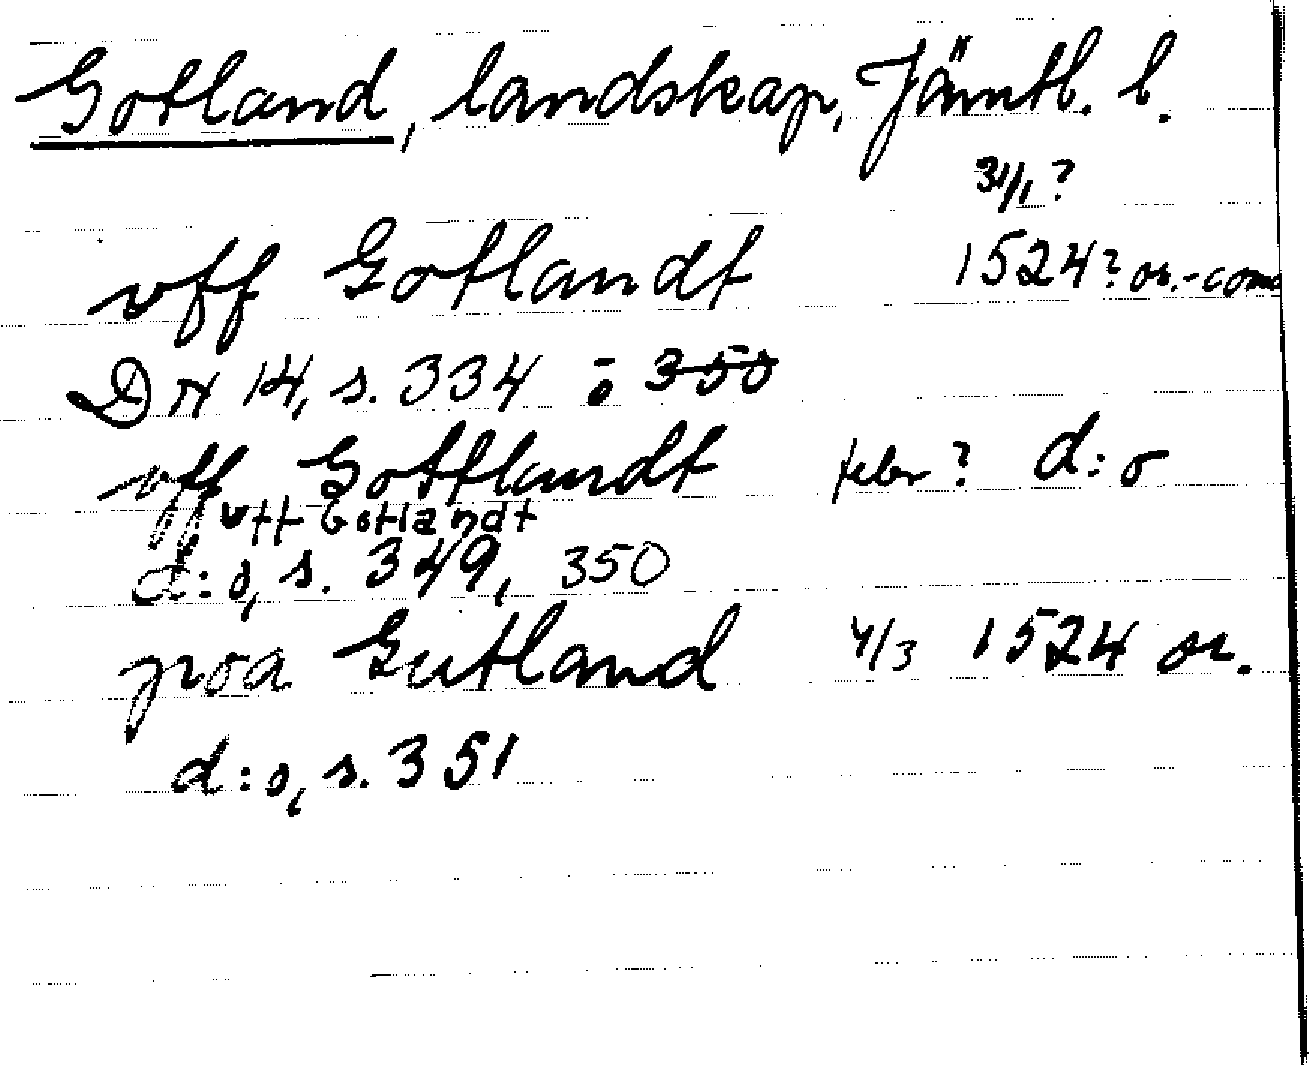 Gotland, landskap, Jämtl. l.
31/1 ?
vff Gotlandt 1524? or.-conc
DN 14, s. 334 o 350
vff Gottlandt febr ? d:o
vff Gotlandt
d:o, s. 349, 350
poa Gutland 4/3 1524 or.
d:o, s. 351